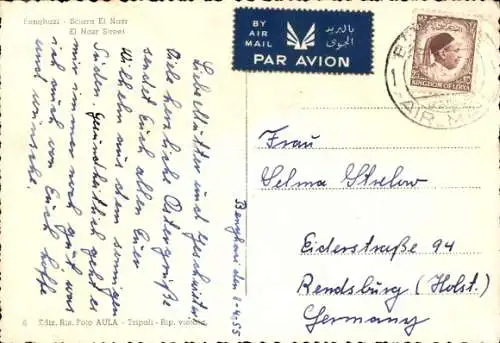 Benghazi - Sciara El Nasr
El Nasr Street
BY
AIR
MAIL
بالبريد
الجوى
PAR AVION
KINGDOM OF LIBYA
AIR MAIL
Benghasi den 2-4.55
Liebe Mutter und Geschwister
Viele herzliche Ostergrüße
sendet Euch allen Euer
Wilhelm aus dem sonnigen
Süden. Gesundheitlich geht es
mir immer noch gut was
ich auch von Euch hoffe
und wünsche.
Frau
Selma Strelow
Eiderstraße 94
Rendsburg (Holst.)
Germany
6 Ediz. Ris. Foto AULA - Tripoli - Rip. vietata